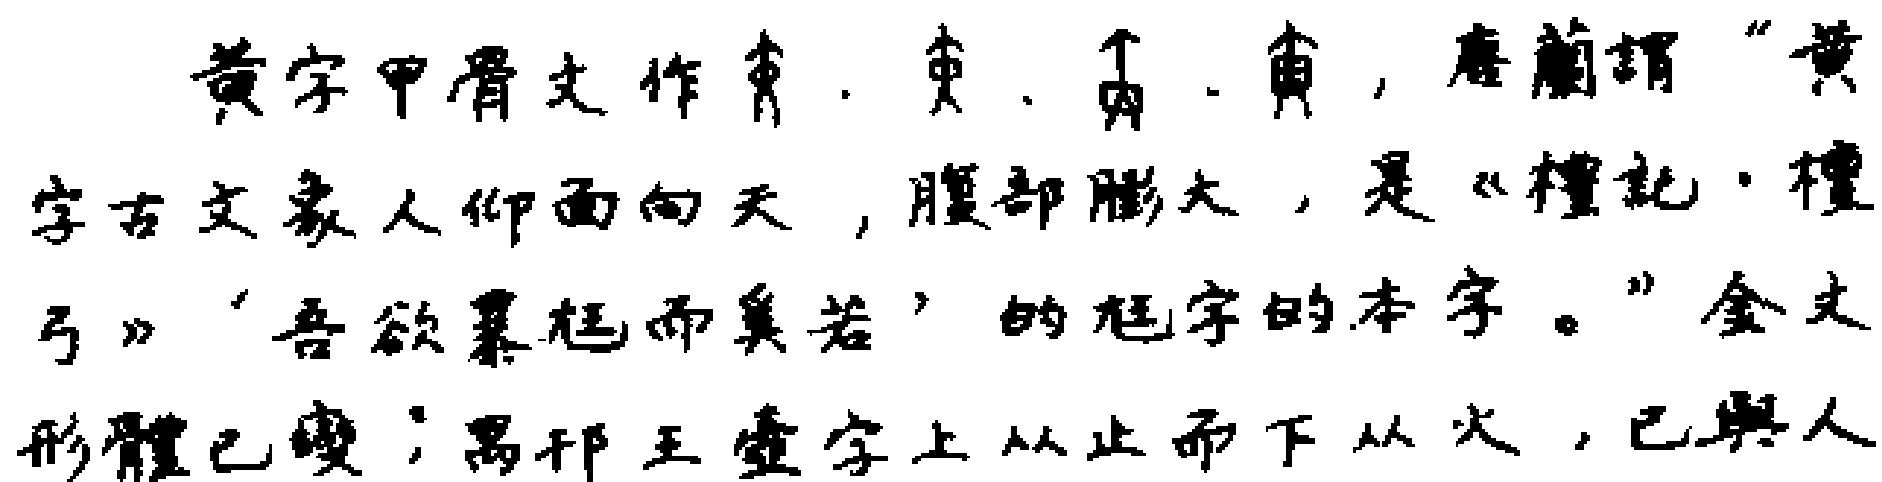 黃字甲骨文作 、 、 、 ，唐蘭謂“黃
字古文象人仰面向天，腹部膨大，是《禮記·檀
弓》‘吾欲暴尪而奚若’的尪字的本字。”金文
形體已變；禺邗王壺字上从止而下从火，已與人